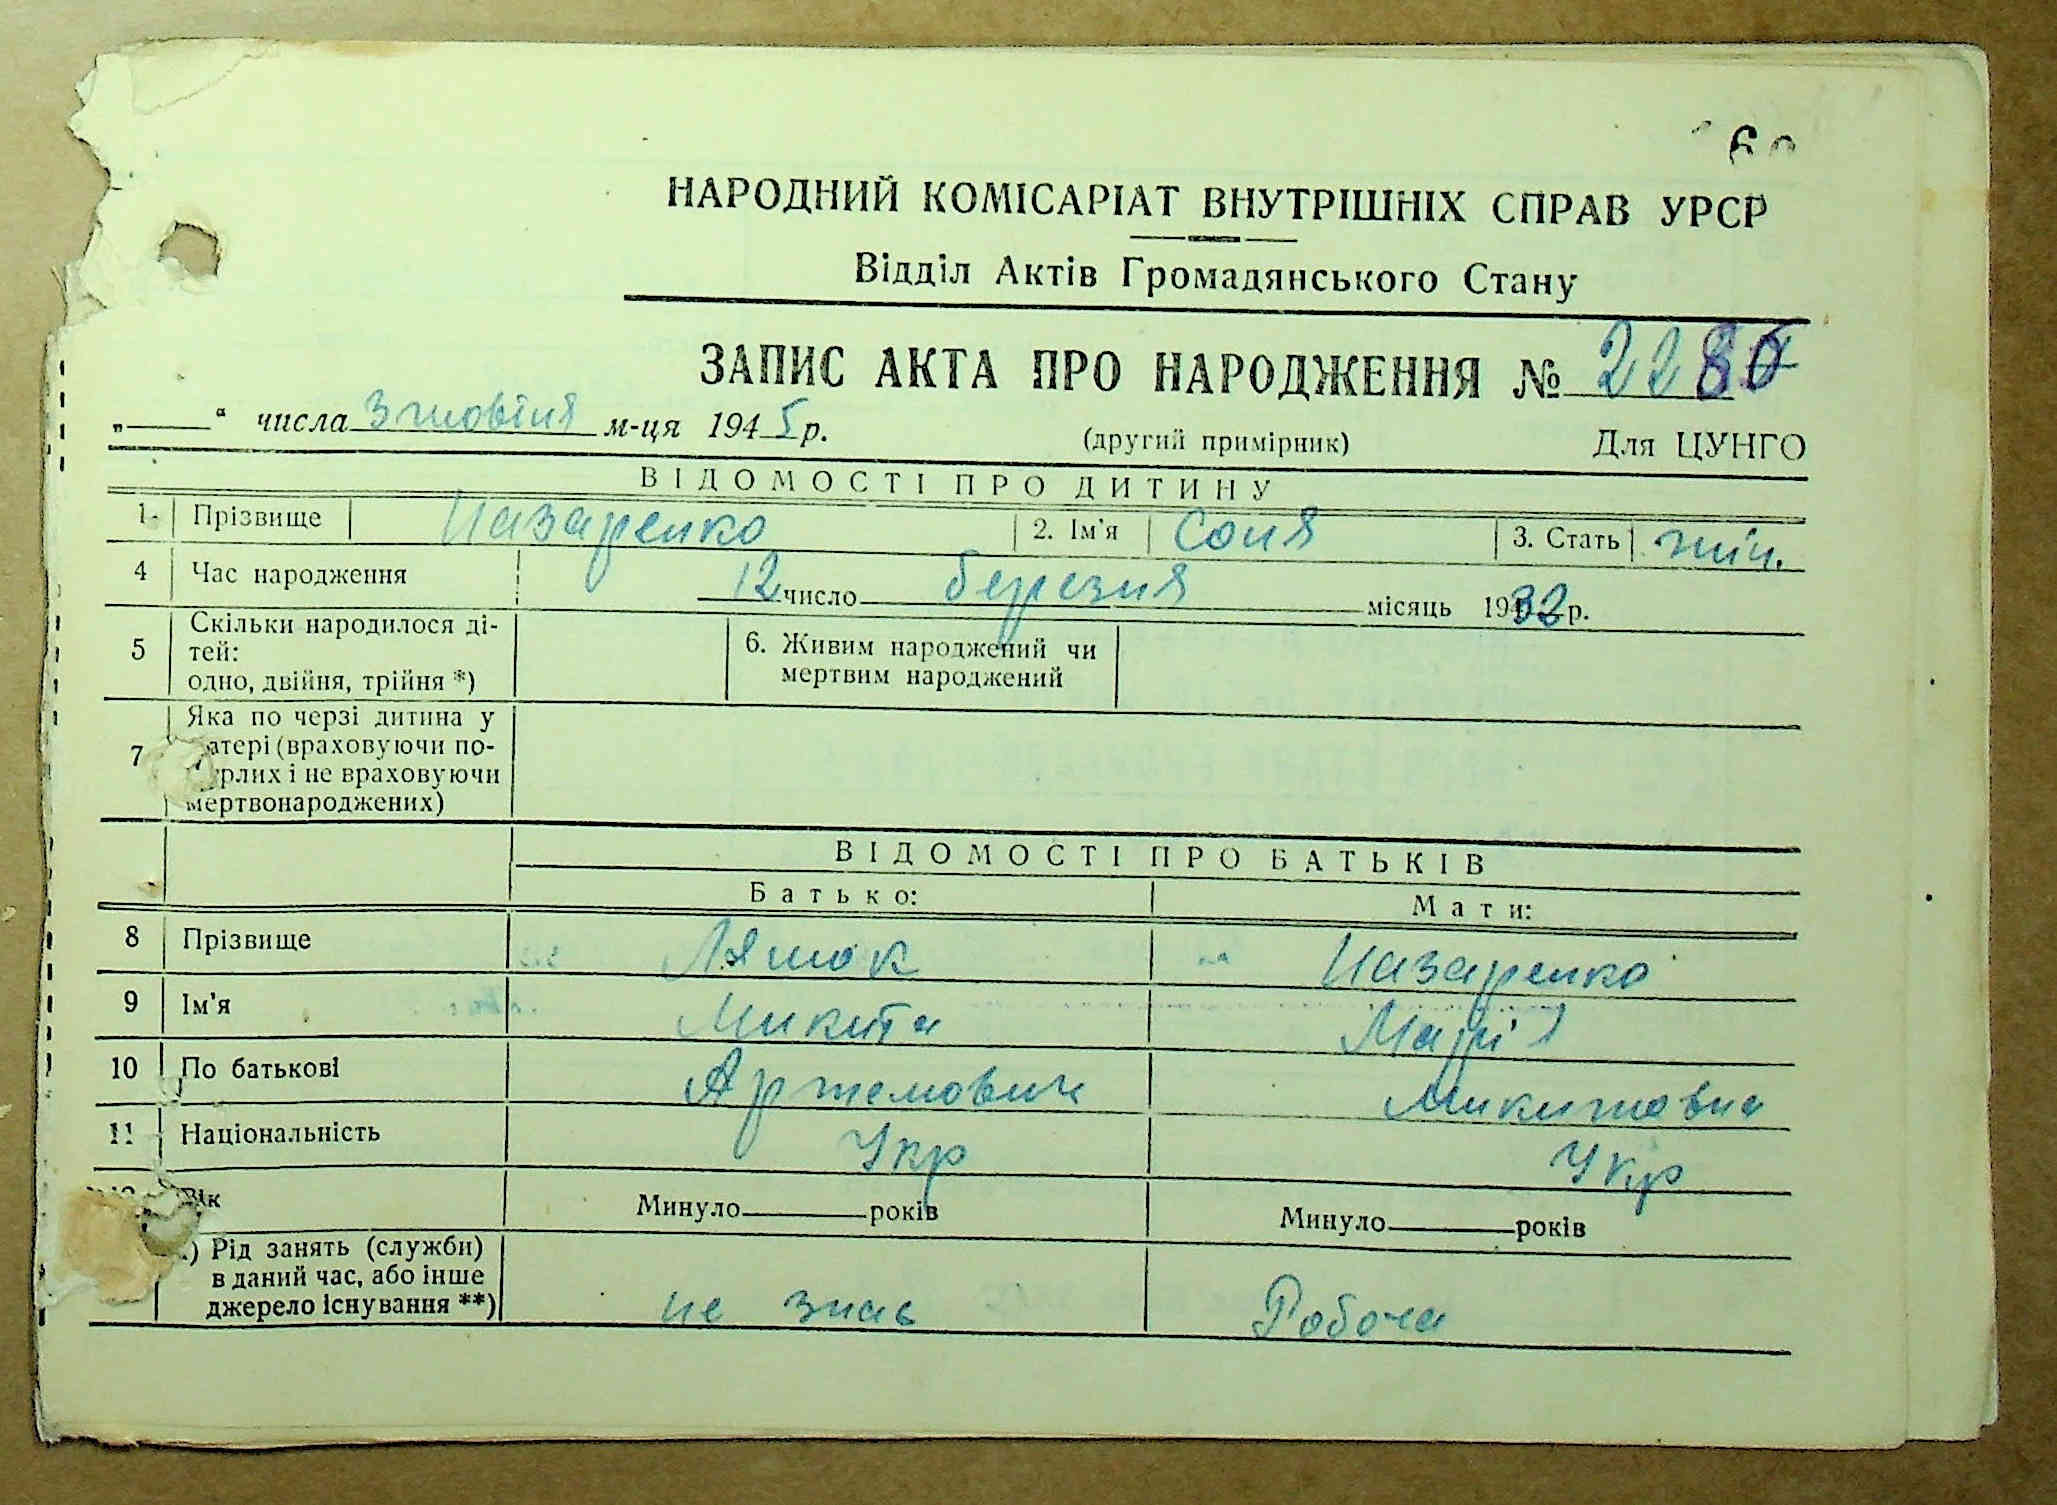 НАРОДНИЙ КОМІСАРІАТ ВНУТРІШНІХ СПРАВ УРСР
Відділ Актів Громадянського Стану
ЗАПИС АКТА ПРО НАРОДЖЕННЯ № 2280
„ “ числа 3 жовтня м-ця 1945 р. (другий примірник) Для ЦУНГО
ВІДОМОСТІ ПРО ДИТИНУ
1. Прізвище Назаренко 2. Ім'я Соня 3. Стать жін.
4 Час народження 12 число березня місяць 1932 р.
5 Скільки народилося ді-
тей:
одно, двійня, трійня *)
6. Живим народжений чи
мертвим народжений
7 Яка по черзі дитина у
матері (враховуючи по-
мерлих і не враховуючи
мертвонароджених)
ВІДОМОСТІ ПРО БАТЬКІВ
Батько: Мати:
8 Прізвище Ляшок Назаренко
9 Ім'я Микита Марія
10 По батькові Артемович Микитовна
11 Національність Укр Укр
12 Вік Минуло років Минуло років
) Рід занять (служби)
в даний час, або інше
джерело існування **) не знає Робоча